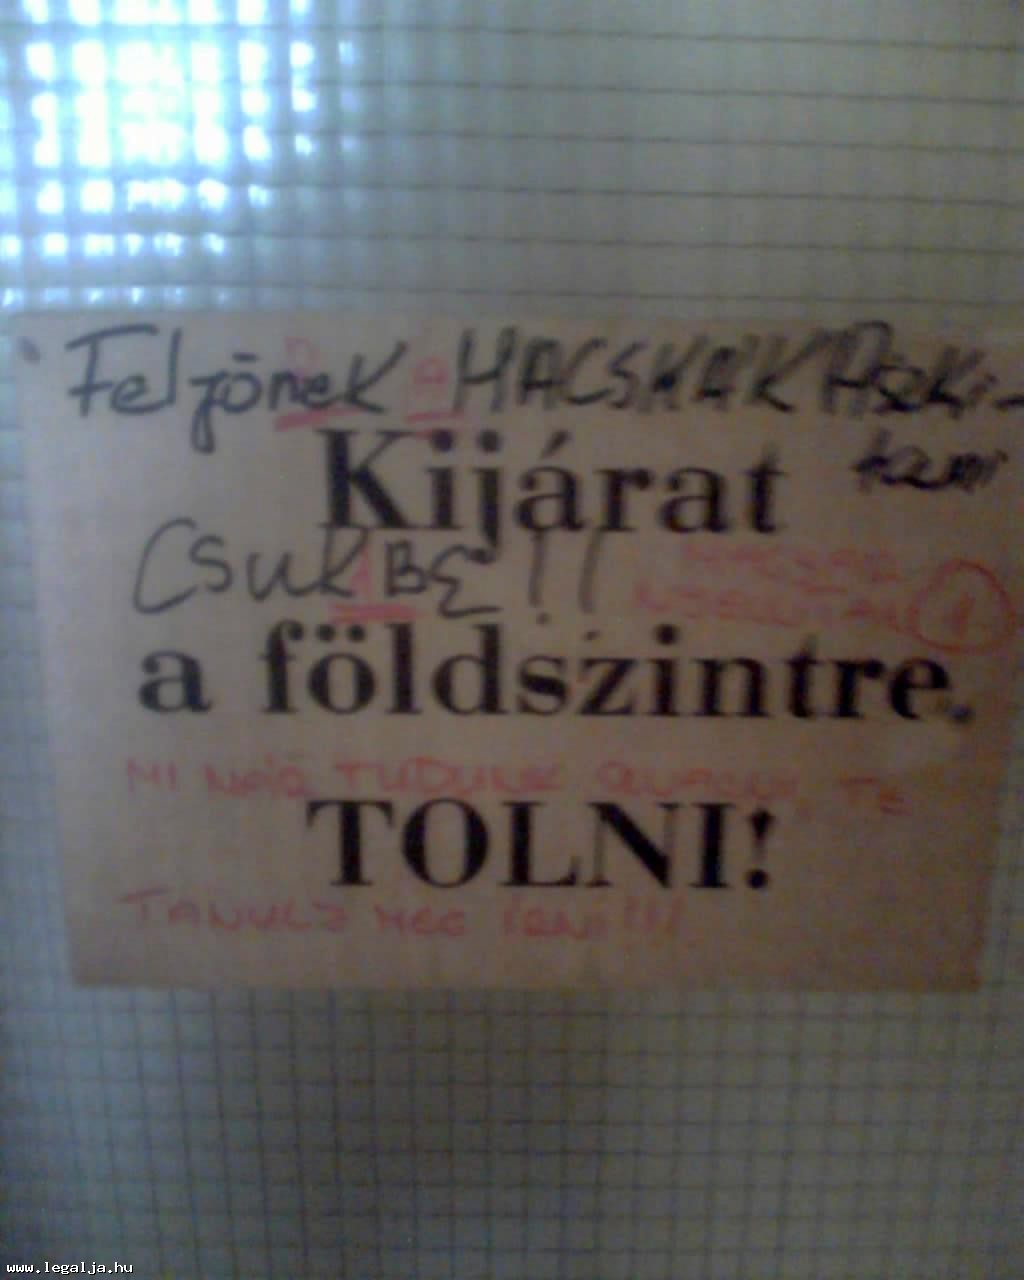 Feljönek A MACSKÁK Piszkí-
tani
Kijárat
CSUKBE!!
a földszintre.
MI MÉG TUDUNK OLVASNI, TE
TOLNI!
TANULJ MEG ÍRNI!!!
www.legalja.hu